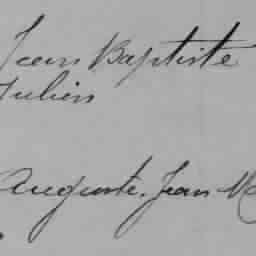 Jean Baptiste
Julien
Auguste. Jean M